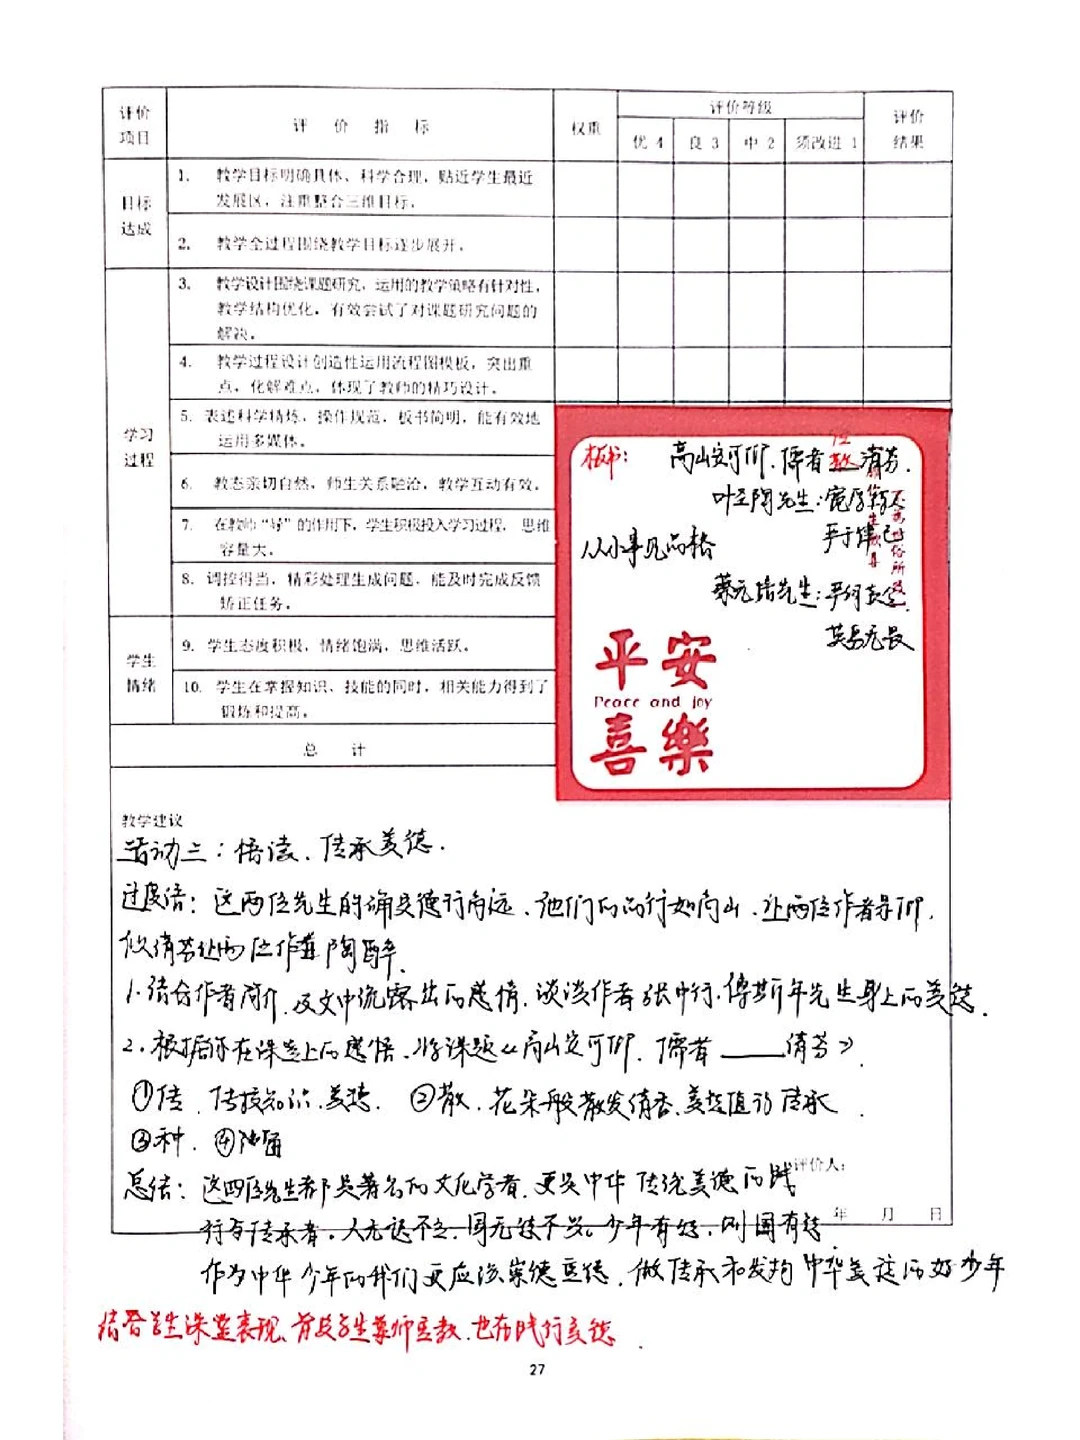 评价项目 评 价 指 标 权重 评价等级 评价结果
优 4 良 3 中 2 须改进 1
目标达成
1. 教学目标明确具体、科学合理，贴近学生最近
发展区，注重整合三维目标。
2. 教学全过程围绕教学目标逐步展开。
学习过程
3. 教学设计围绕课题研究，运用的教学策略有针对性，
教学结构优化，有效尝试了对课题研究问题的
解决。
4. 教学过程设计创造性运用流程图模板，突出重
点，化解难点，体现了教师的精巧设计。
5. 表述科学精炼，操作规范，板书简明，能有效地
运用多媒体。
6. 教态亲切自然，师生关系融洽，教学互动有效。
7. 在教师“导”的作用下，学生积极投入学习过程， 思维
容量大。
8. 调控得当，精彩处理生成问题，能及时完成反馈
矫正任务。
学生情绪
9. 学生态度积极，情绪饱满，思维活跃。
10. 学生在掌握知识、技能的同时，相关能力得到了
锻炼和提高。
总 计
板书： 高山安可仰，儒者 清芬.
叶圣陶先生：宽厚待人
严于律己
从小事见品格
蔡元培先生：
平安
Peace and joy
喜樂
教学建议
活动三：悟读、传承美德.
过度语：这两位先生的确是德行高远、他们的品行如高山、让两位作者景仰，
似清芬让两位作者陶醉.
1.结合作者简介、及文中流露出的感情，谈谈作者张中行、傅斯年先生身上的美德.
2.根据你在课堂上的感悟、将课题《高山安可仰，儒者____清芬》
①传、传授知识、美德. ②散、花朵般散发清香、美德值得传承
③种. ④
评价人：
总结：这四位先生都是著名的文化学者，更是中华传统美德的践
年 月 日
行与传承者。人无德不立，国无德不兴。少年有德，则国有德
作为中华少年的我们更应该崇德重德，做传承和发扬中华美德的好少年
结合学生课堂表现、 学生尊师重教，也在践行美德.
27